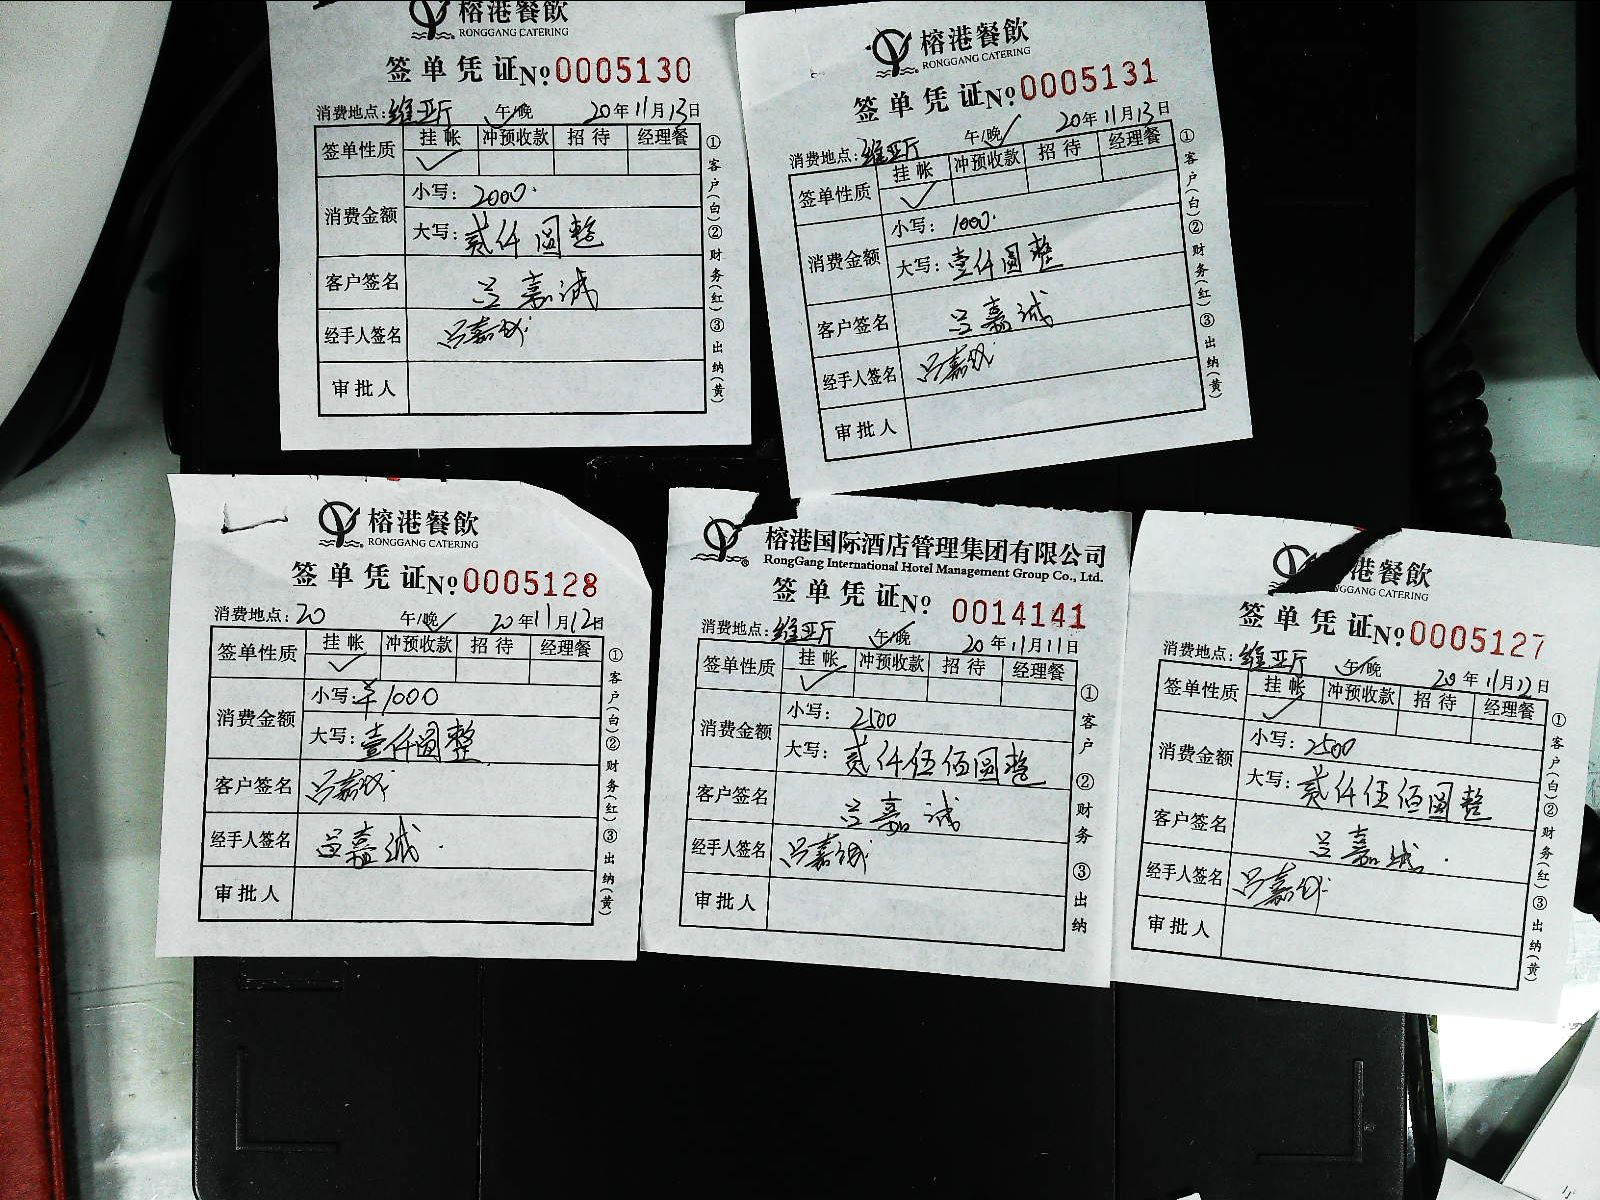 榕港餐飲
RONGGANG CATERING
签单凭证№0005130
消费地点:维亚厅 午/晚 20年11月13日
签单性质 挂帐 冲预收款 招待 经理餐
消费金额 小写:2000.
大写:贰仟圆整
客户签名 吕嘉诚
经手人签名 吕嘉诚
审批人
①客户(白)②财务(红)③出纳(黄)
榕港餐飲
RONGGANG CATERING
签单凭证№0005131
消费地点:维亚厅 午/晚 20年11月13日
签单性质 挂帐 冲预收款 招待 经理餐
消费金额 小写:1000.
大写:壹仟圆整
客户签名 吕嘉诚
经手人签名 吕嘉诚
审批人
①客户(白)②财务(红)③出纳(黄)
榕港餐飲
RONGGANG CATERING
签单凭证№0005128
消费地点:20 午/晚 20年11月12日
签单性质 挂帐 冲预收款 招待 经理餐
消费金额 小写:¥1000
大写:壹仟圆整
客户签名 吕嘉诚
经手人签名 吕嘉诚
审批人
①客户(白)②财务(红)③出纳(黄)
榕港国际酒店管理集团有限公司
RongGang International Hotel Management Group Co., Ltd.
签单凭证№ 0014141
消费地点:维亚厅 午/晚 20年11月11日
签单性质 挂帐 冲预收款 招待 经理餐
消费金额 小写:2500
大写:贰仟伍佰圆整
客户签名 吕嘉诚
经手人签名 吕嘉诚
审批人
①客户 ②财务 ③出纳
港餐飲
NGGANG CATERING
签单凭证№0005127
消费地点:维亚厅 午/晚 20年11月12日
签单性质 挂帐 冲预收款 招待 经理餐
消费金额 小写:2500
大写:贰仟伍佰圆整
客户签名 吕嘉诚
经手人签名 吕嘉诚
审批人
①客户(白)②财务(红)③出纳(黄)